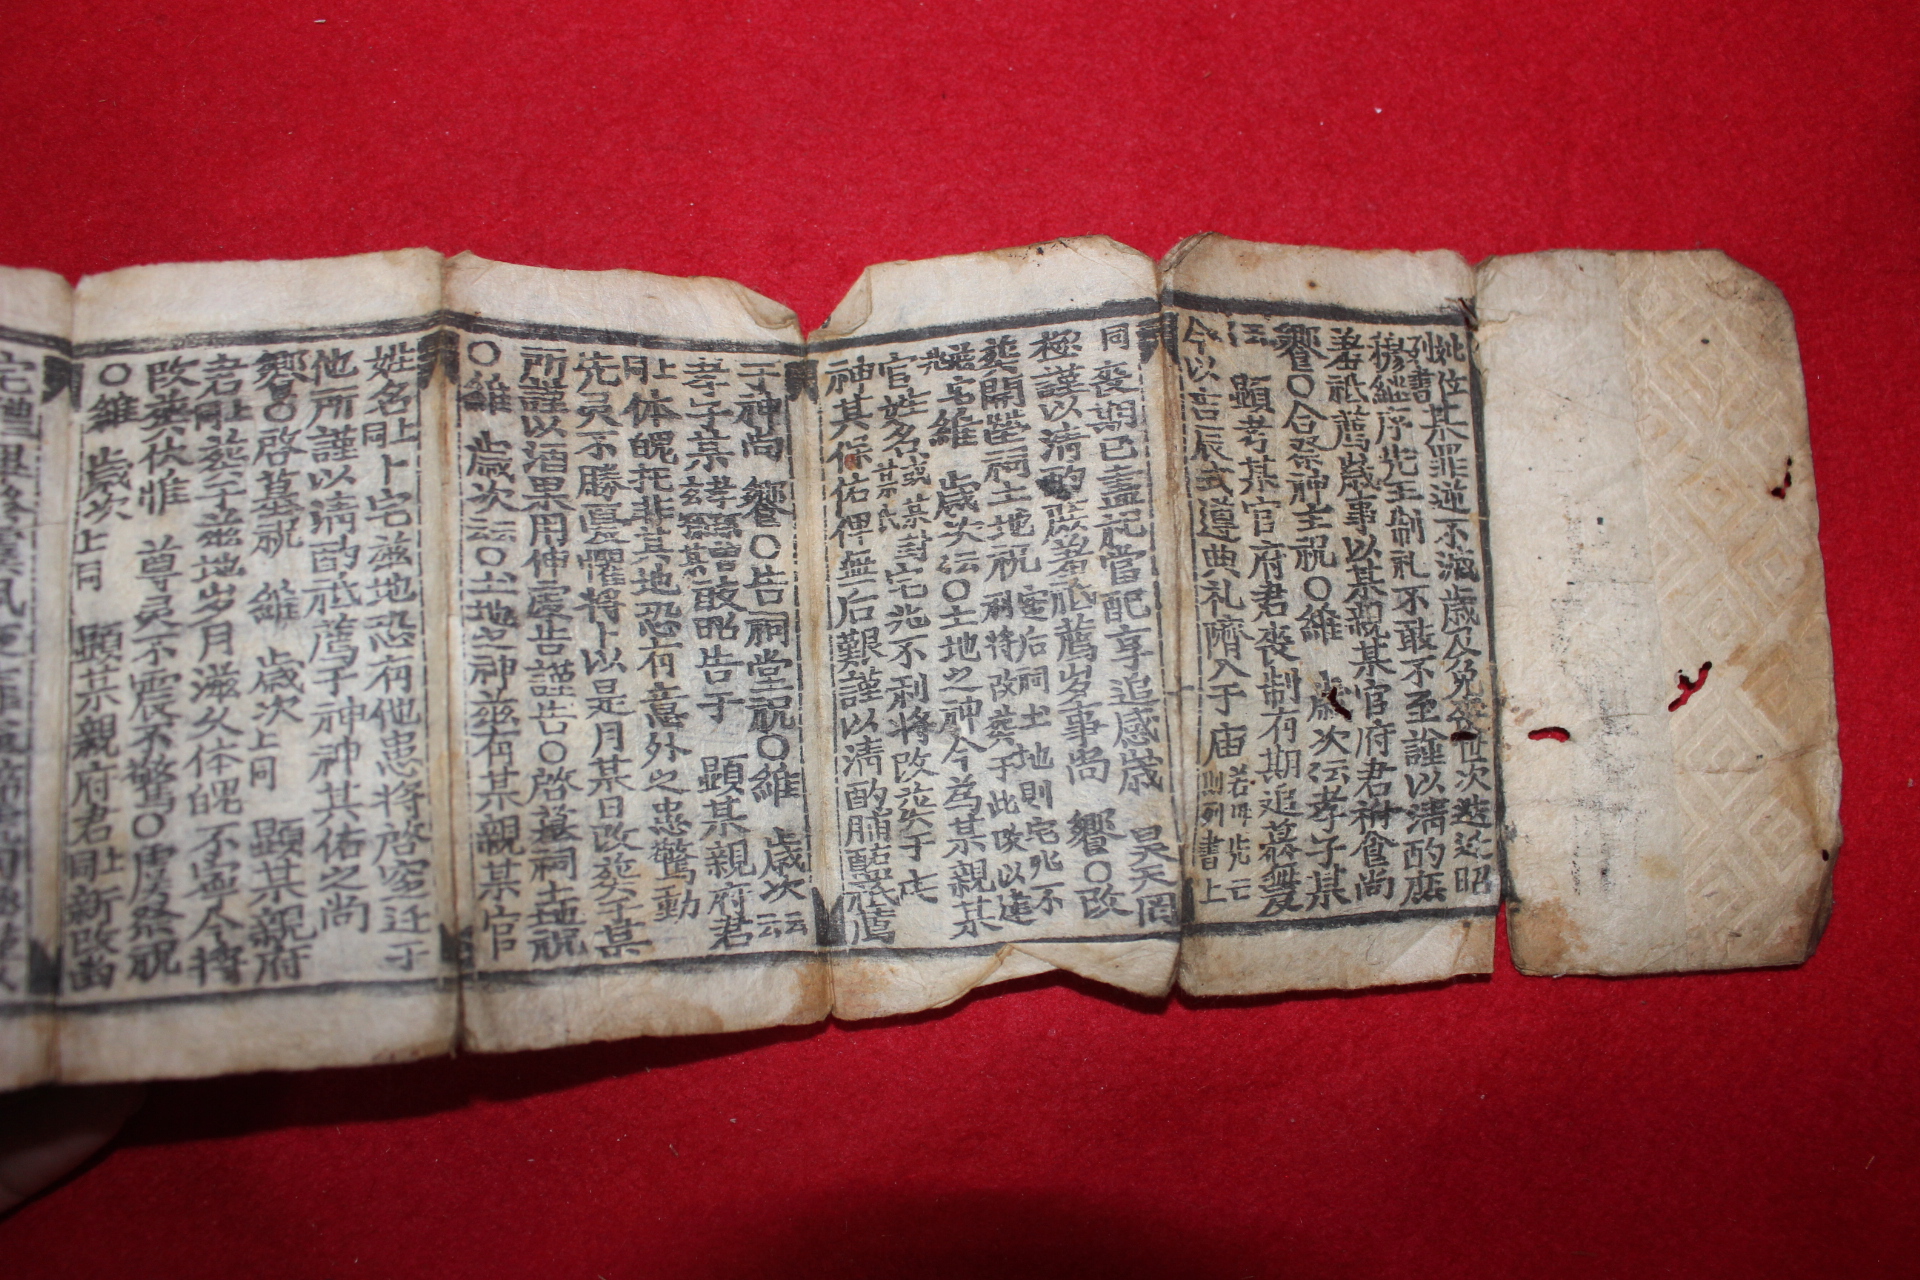 妣位列書某罪逆不滅歲及免喪世次迭迁昭
穆継序先王制礼不敢不至謹以清酌庶
羞祗薦歲事以某親某官府君祔食尚
饗○合祭神主祝○維 歲次云孝子某
云 顯考某官府君喪制有期追慕無及
今以吉辰式遵典礼隮入于 庙 若 先亡則列書上
同 喪期已盡祀當配享追感歲 昊天罔
極謹以清酌庶羞祗薦岁事尚 饗○改
葬開塋祠土地祝
玆宅維 歲次云○土地之神今為某親某
官姓名或某封某氏宅兆不利將改葬于此
神其保佑俾無后艱謹以清酌脯醢祗薦
于神尚 饗○告祠堂祝○維 歲次云
孝子某玄孫某敢昭告于 顯某親府君
上同体魄托非其地恐有意外之患驚動
先灵不勝憂懼將卜以是月某日改葬于某
所謹以酒果用伸虔告謹告○啓墓祠土地祝
○維 歲次云○土地之神玆有某親某官
姓名上同卜宅玆地恐有他患將啓窆迁于
他所謹以清酌祗薦于神神其佑之尚
饗○啓墓祝 維 歲次上同 顯某親府
君上同葬于玆地岁月滋久体魄不寧今將
改葬伏惟 尊灵不震不驚○虞祭祝
○維 歲次上同 顯某親府君上同新改幽
宅禮畢終